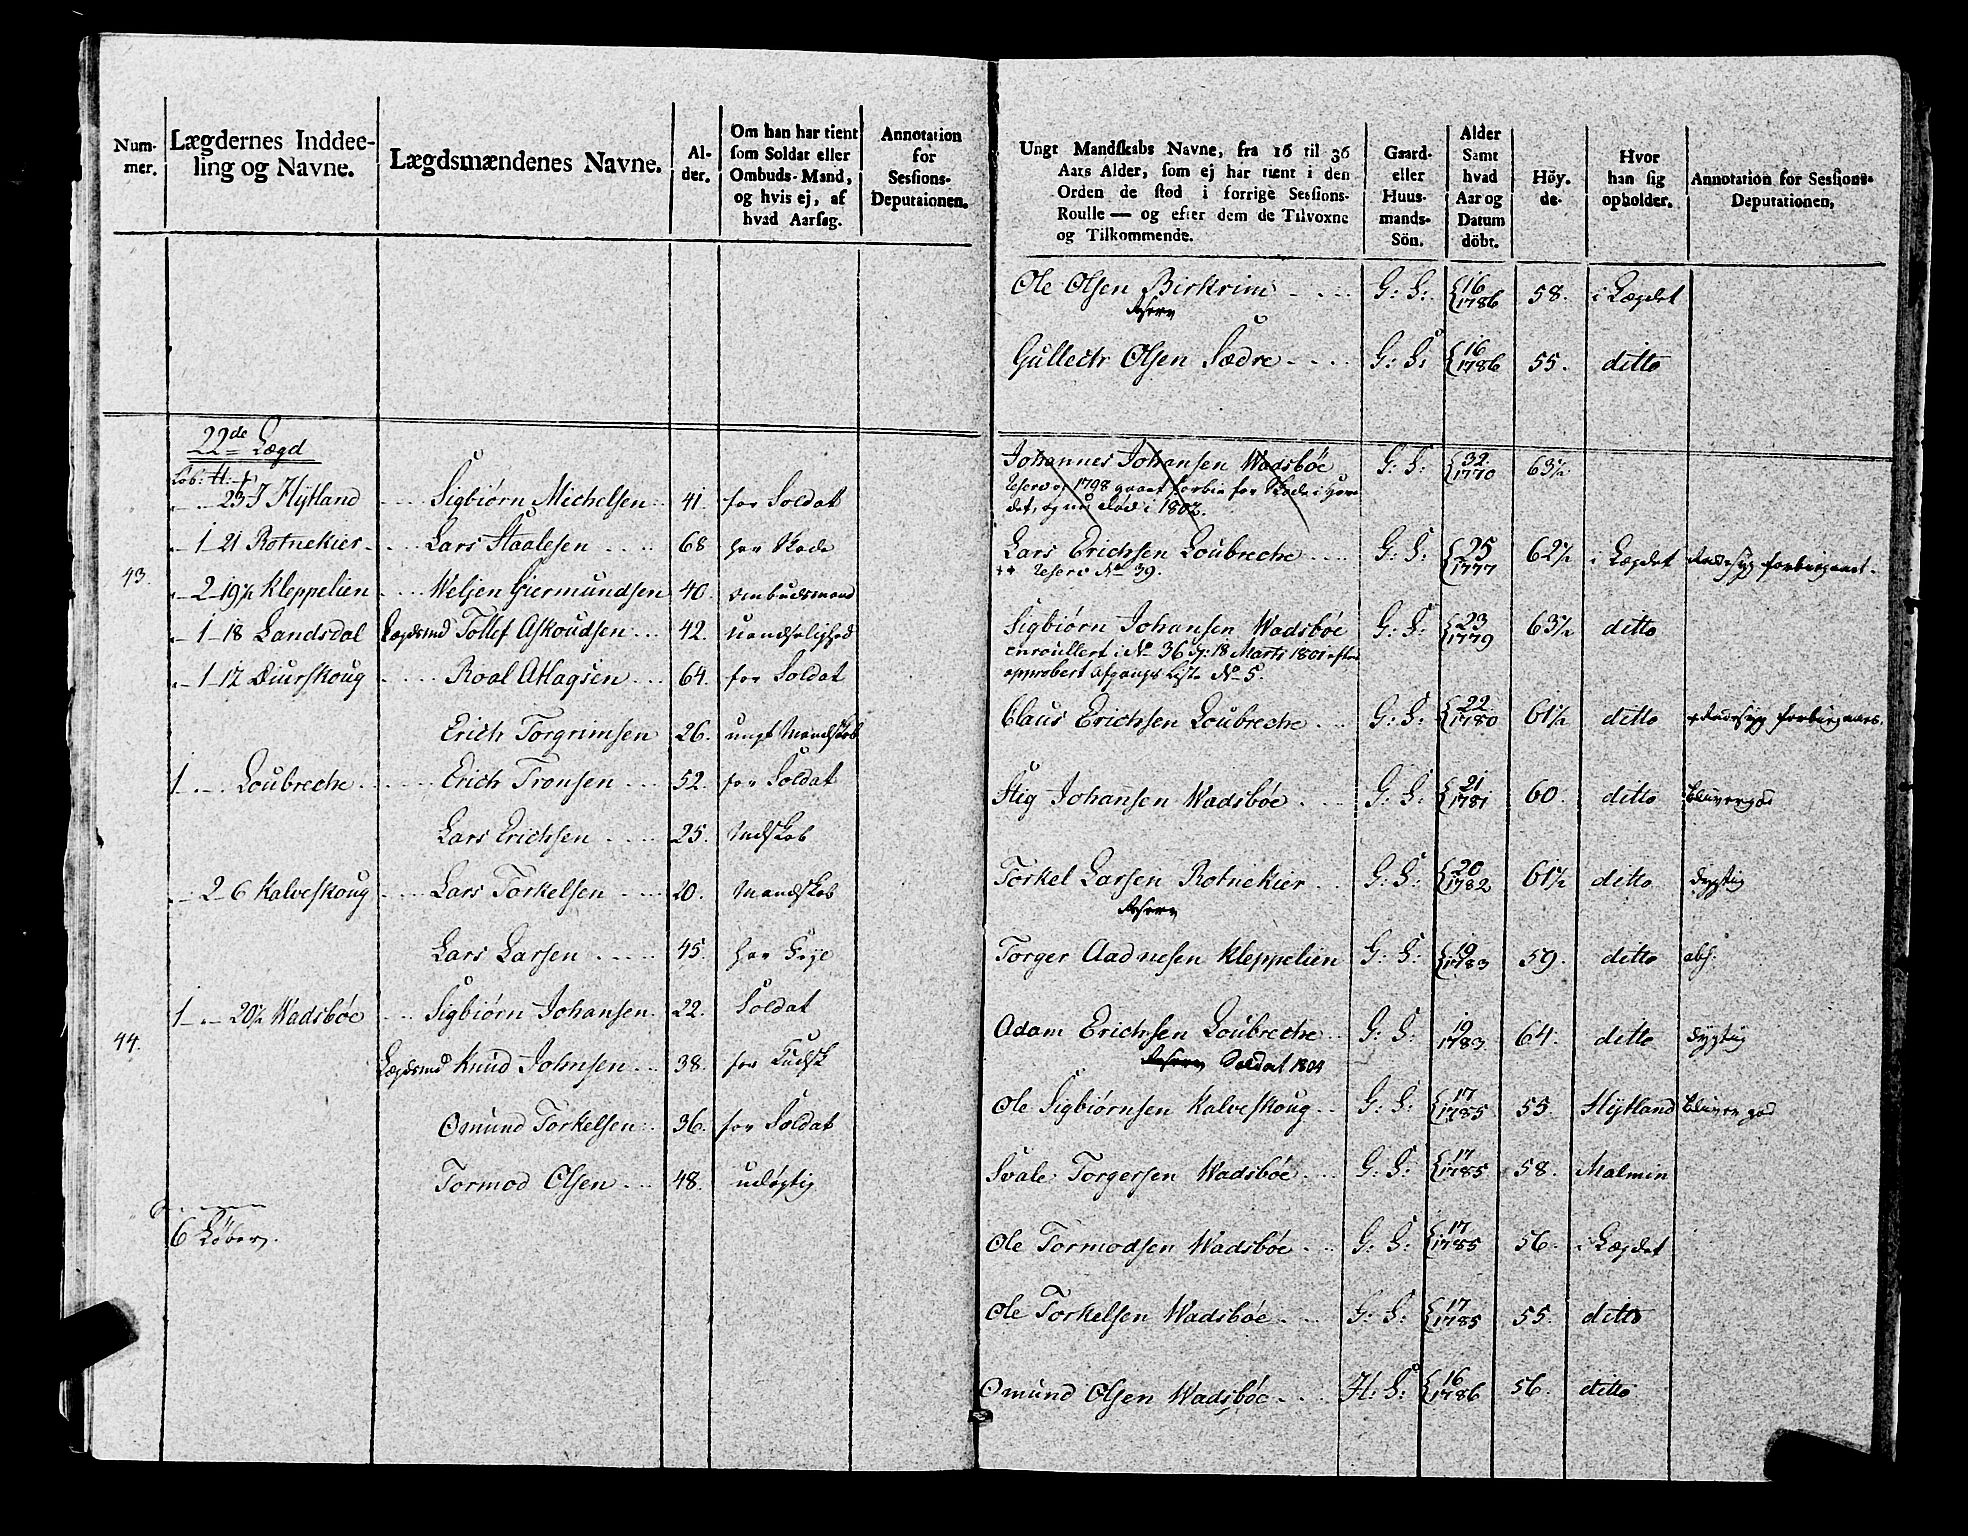 Num-
mer.
Lægdernes Inddee-
ling og Navne.
Lægdsmændenes Navne.
Al-
der.
Om han har tient
som Soldat eller
Ombuds-Mand,
og hvis ej, af
hvad Aarsøg.
Annotation
for
Sessions-
Deputaionen.
22de Lægd
Løb: H:
23 Hÿtland Sigbiørn Michelsen 41. for Soldat
1 21 Rotnekier Lars Staalesen 68 har Skade
43.
2 19½ Kleppelien Weljen Giermundsen 40. ombudsmand
1 18 Landsdal Lægdsmd Tollef Askoudsen 42. uandseelighed
1 12 Diurskoug Roal Atlagsen 64. for Soldat
Erich Torgrimsen 26. ungt Mandskab
1 Loubreche Erich Tronsen 52. for Soldat
Lars Erichsen 25. Mdskab
2 6 Kalveskoug Lars Torkelsen 20. Mandskab
Lars Larsen 45. har
1 20½ Wadsbøe Sigbiørn Johansen 22. Soldat
44.
Lægdsmd Knud Johnsen 38. for Kudsk
Omund Torkelsen 36. for Soldat
Tormod Olsen 48. udøgtig
6 Løber.
Ungt Mandskabs Navne, fra 16 til 36
Aars Alder, som ej har tient i den
Orden de stod i forrige Sessions-
Roulle — og efter dem de Tilvoxne
og Tilkommende.
Gaard-
eller
Huus-
mands-
Sön.
Alder
Samt
hvad
Aar og
Datum
döbt.
Höy-
de.
Hvor
han sig
opholder.
Annotation for Sessions-
Deputationen.
Ole Olsen Birkrim G: S: 16 1786 58. i Lægdet
Reserv
Gullech Olsen Sædre G: S: 16 1786 55. ditto
Johannes Johansen Wadsbøe G: S: 32 1770 63½
Reserv og 1798 gaaet forbie for Skade i
det, og nu død i 1802.
Lars Erichsen Loubreche G: S: 25 1777 62½ i Lægdet Radesyg forbigaaet
Reserv No 39.
Sigbiørn Johansen Wadsbøe G: S: 23 1779 63½ ditto
enroullert i No 36 d: 18 Marts 1801 efter
approbert Afgangs Liste No 5.
Claus Erichsen Loubreche G: S: 22 1780 61½ ditto Radesyg forbigaaes.
Stig Johansen Wadsbøe G: S: 21 1781 60. ditto
Torkel Larsen Rotnekier G: S: 20 1782 61½ ditto dygtig
Reserv
Torger Aadnesen Kleppelien G: S: 19 1783 59. ditto abs:
Adam Erichsen Loubreche G: S: 19 1783 64. ditto dygtig
Reserv Soldat 1804
Ole Sigbiørnsen Kalveskoug G: S: 17 1785 55. Hÿtland
Svale Torgersen Wadsbøe G: S: 17 1785 58. Malmin
Ole Tormodsen Wadsbøe G: S: 17 1785 56. i Lægdet
Ole Torkelsen Wadsbøe G: S: 17 1785 55. ditto
Omund Olsen Wadsbøe H: S: 16 1786 56. ditto